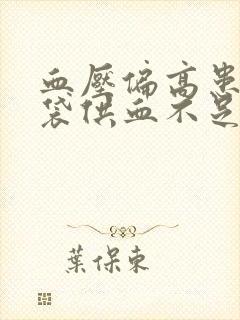 血壓偏高患
袋供血不足
葉保東